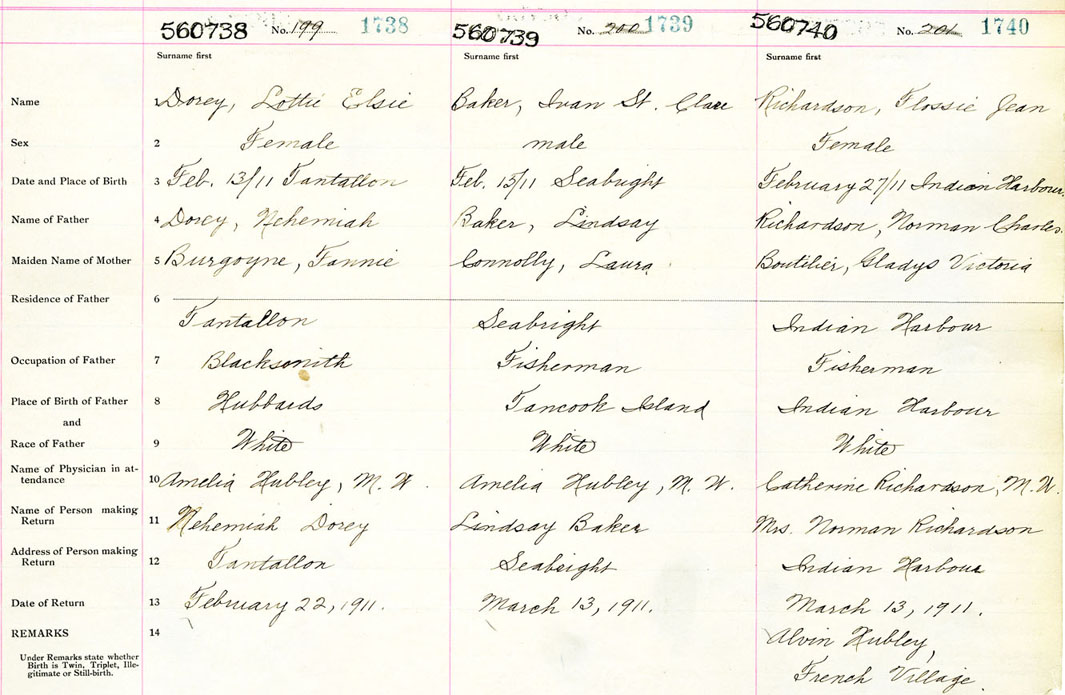 560738 No. 199 1738 560739 No. 200 1739 560740 No. 201 1740
Surname first Surname first Surname first
Name 1 Dorey, Lottie Elsie Baker, Ivan St. Clare Richardson, Flossie Jean
Sex 2 Female male Female
Date and Place of Birth 3 Feb. 13/11 Tantallon Feb. 15/11 Seabright February 27/11 Indian Harbour.
Name of Father 4 Dorey, Nehemiah Baker, Lindsay Richardson, Norman Charles.
Maiden Name of Mother 5 Burgoyne, Fannie Connolly, Laura Boutilier, Gladys Victoria
Residence of Father 6
Tantallon Seabright Indian Harbour
Occupation of Father 7 Blacksmith Fisherman Fisherman
Place of Birth of Father 8 Hubbards Tancook Island Indian Harbour
and
Race of Father 9 White White White
Name of Physician in at-
tendance 10 Amelia Hubley, M. W. Amelia Hubley, M. W. Catherine Richardson, M. W.
Name of Person making
Return 11 Nehemiah Dorey Lindsay Baker Mrs. Norman Richardson
Address of Person making
Return 12 Tantallon Seabright Indian Harbour
Date of Return 13 February 22, 1911. March 13, 1911. March 13, 1911.
REMARKS 14 Alvin Hubley,
Under Remarks state whether
Birth is Twin, Triplet, Ille-
gitimate or Still-birth.
French Village.